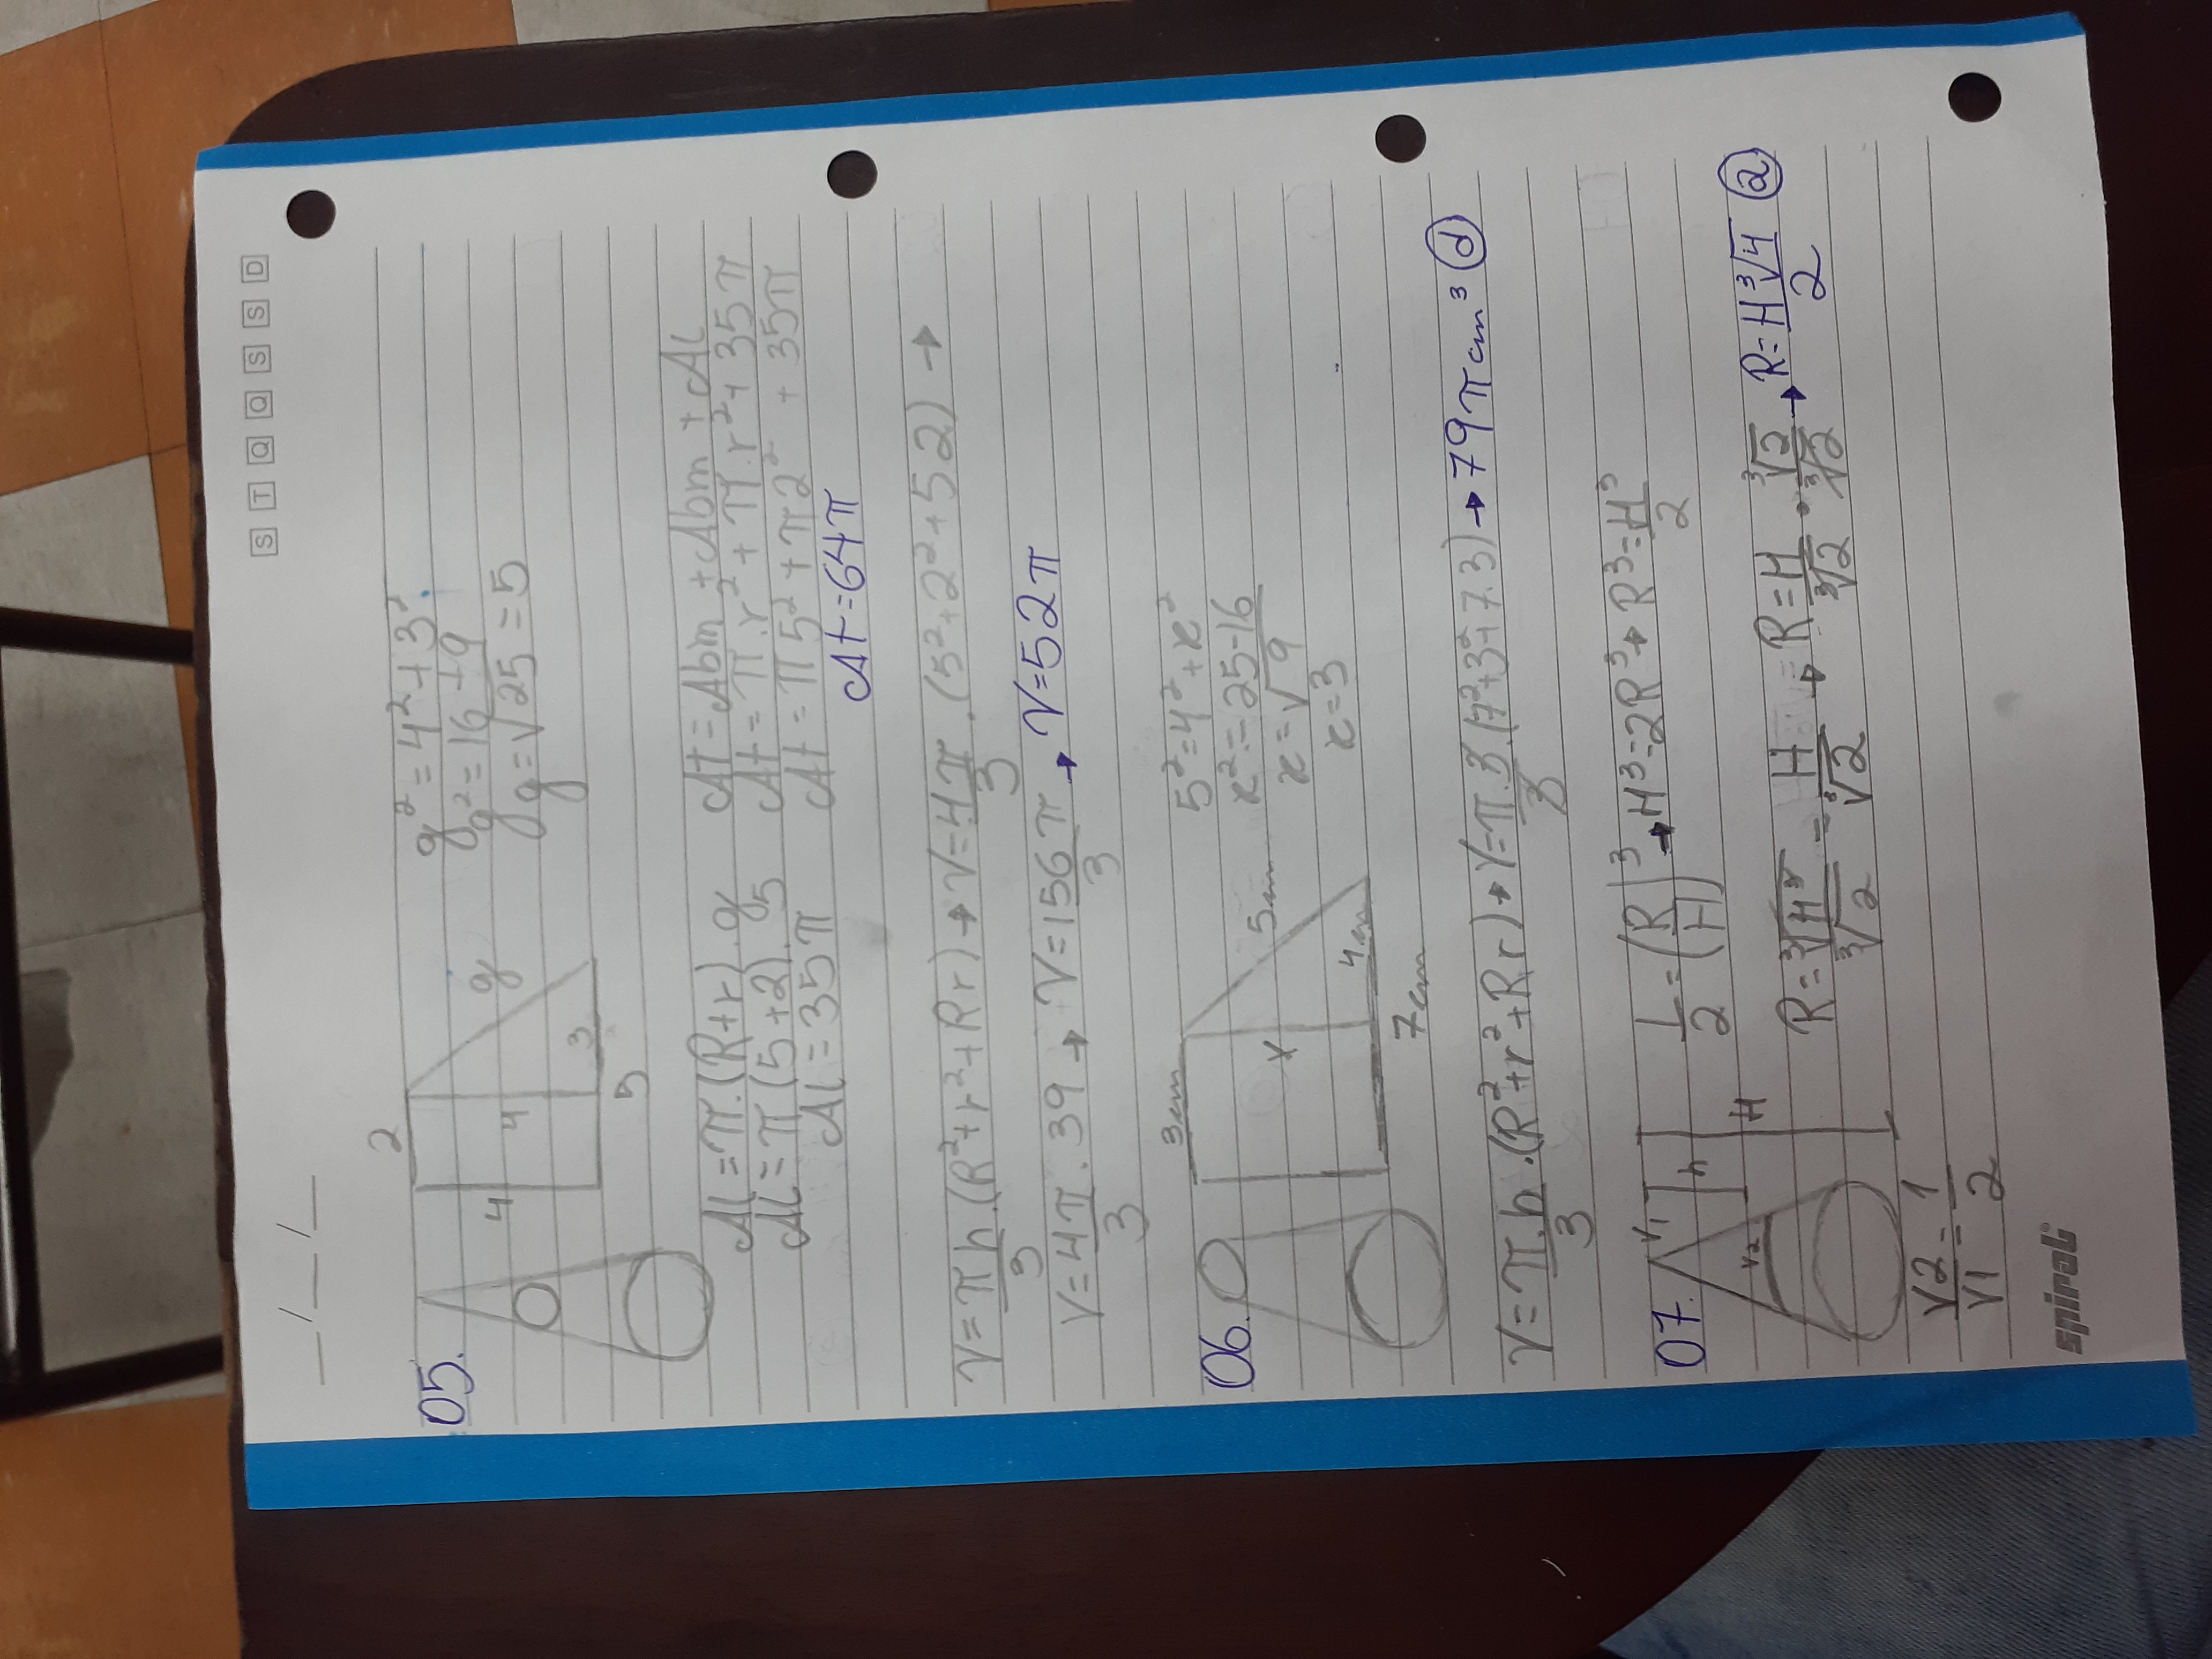 S T Q Q S S D
__/__/__
05.
2
4 4 g
3
5
g² = 4² + 3²
g² = 16 + 9
g = √25 = 5
Al = π.(R+r).g
Al = π(5+2).5
Al = 35π
At = Abm + Abm + Al
At = π.r² + π.r² + 35π
At = π5² + π2² + 35π
At = 64π
V = πh/3 .(R²+r²+Rr) → V = 4π/3 .(5²+2²+5 2) →
V = 4π/3 . 39 → V = 156π/3 → V = 52π
06.
3cm
x 5cm
4cm
7cm
5² = 4² + x²
x² = 25-16
x = √9
x = 3
V = π.h/3 .(R²+r²+R.r) → V = π.3/3 .(7²+3²+7.3) → 79π cm³ (d)
07.
V1
h
V2
H
V2/V1 = 1/2
1/2 = (R/H)³ → H³ = 2R³ → R³ = H³/2
R = ³√H³/³√2 = H/³√2 → R = H/³√2 . ³√2/³√2 → R = H³√4/2 (a)
spiral